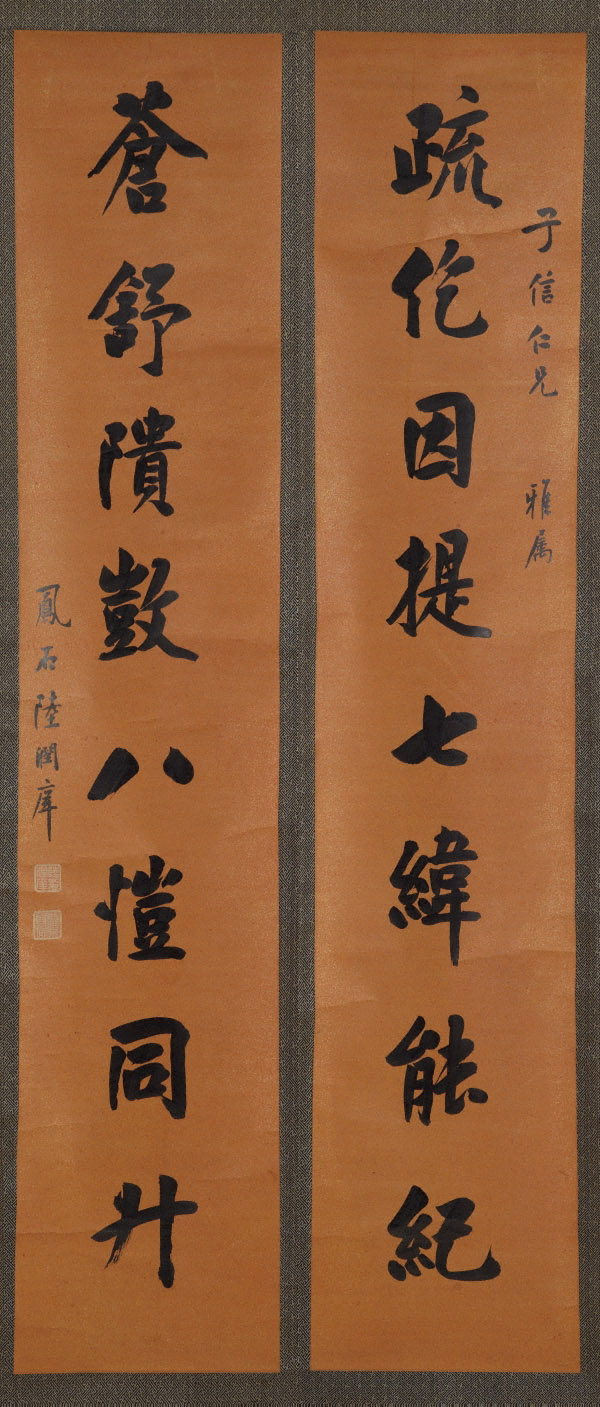 疏仡因提七緯能紀
子信仁兄 雅属
蒼舒隤敳八愷同升
鳳石陸潤庠